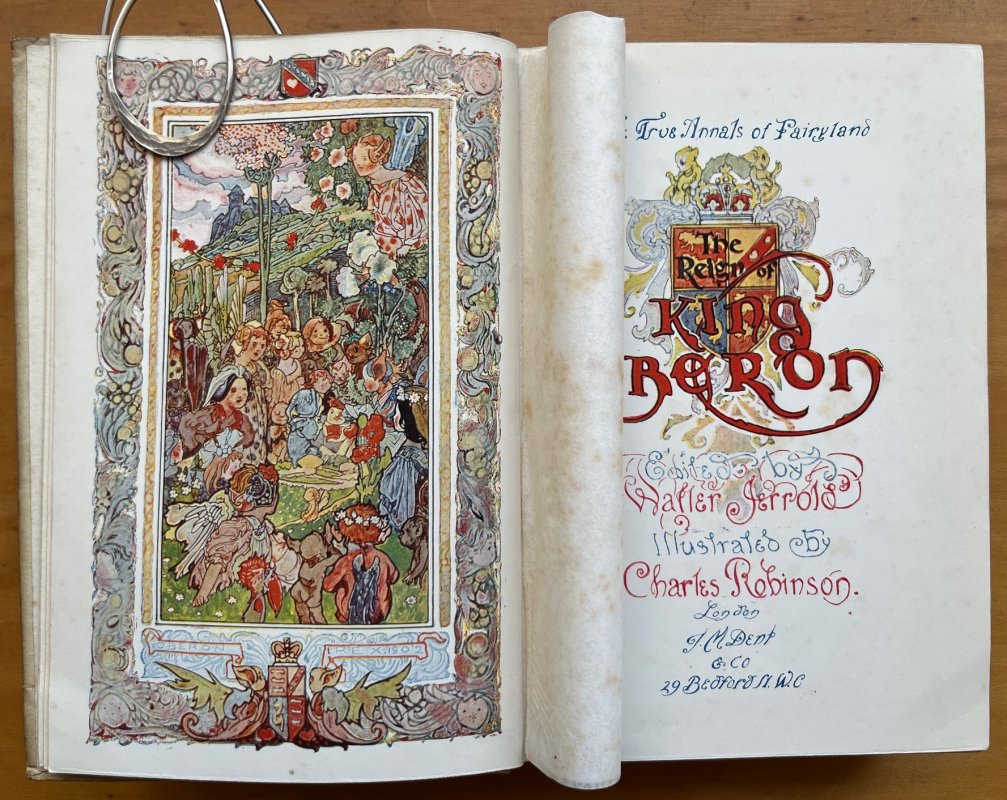 OBERON REX.1902
True Annals of Fairyland
The
Reign of
KING
BERON
Edited by
Walter Jerrold
Illustrated by
Charles Robinson.
London
J. M Dent
& Co
29 Bedford St. W.C